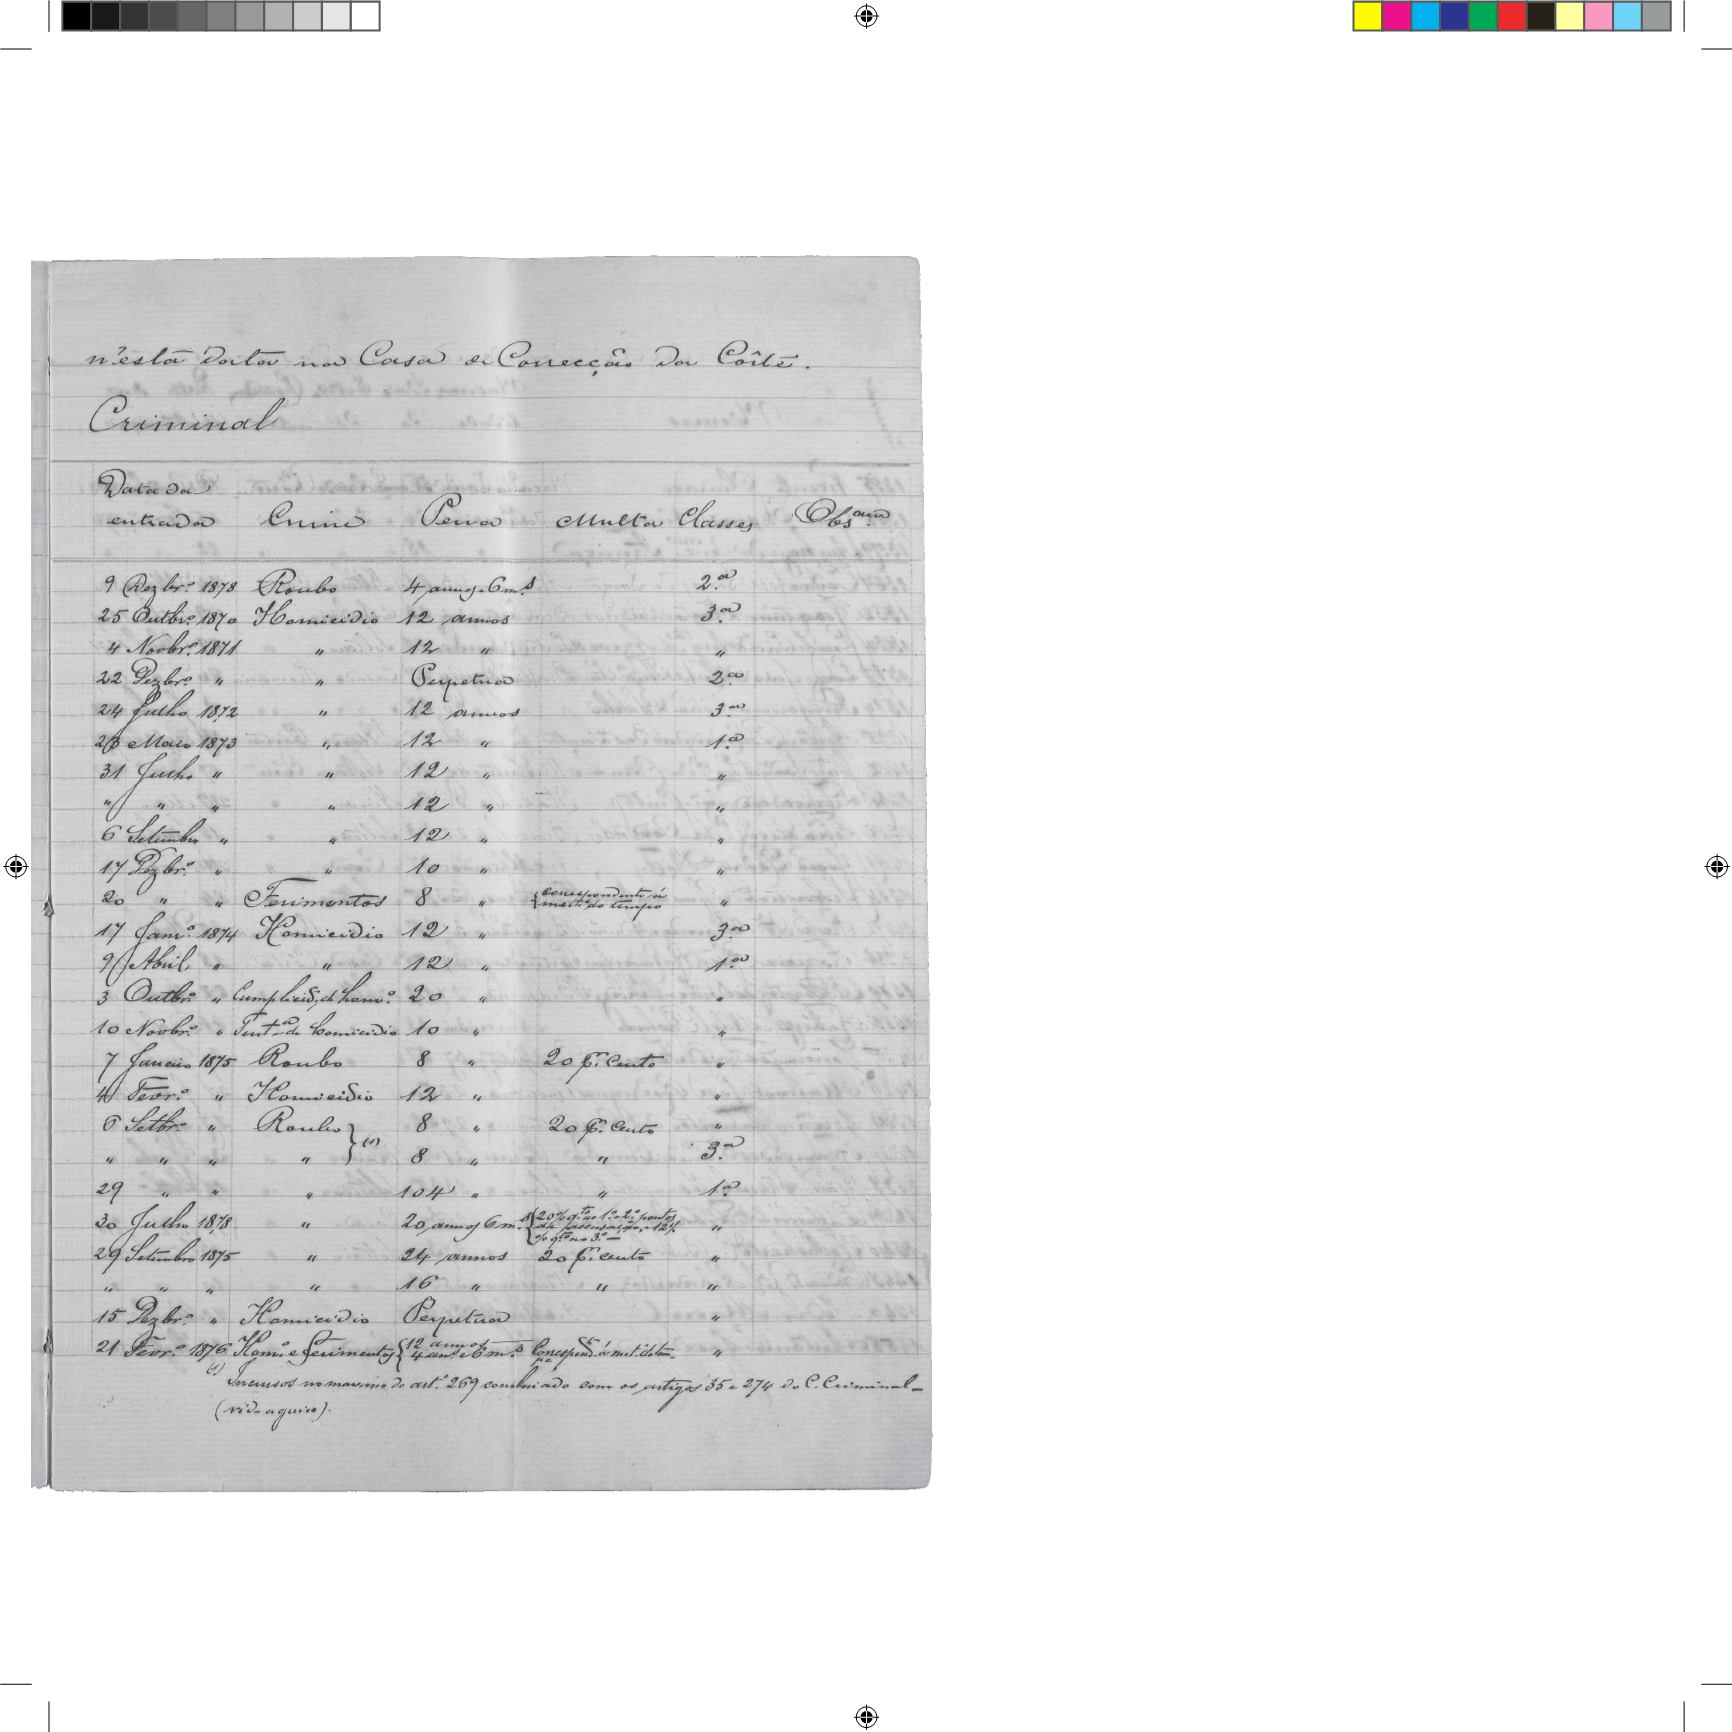 n'esta data na Casa de Correcção da Côrte.
Criminal
Data da
entrada Crime Pena Multa Classes Obs.am
9 Dezbr.º 1878 Roubo 4 annos e 6 m.s 2.ª
25 Outbr.º 1870 Homicidio 12 annos 3.ª
4 Novbr.º 1871 " 12 " "
22 Dezbr.º " " Perpetua 2.ª
24 Julho 1872 " 12 annos 3.ª
Maio 1873 " 12 " 1.ª
31 Julho " " 12 " "
" " " " 12 " "
6 Setembro " " 12 " "
17 Dezbr.º " " 10 " "
20 " " Ferimentos 8 " { correspondente á "
met.e do tempo
17 Jan.º 1874 Homicidio 12 " 3.ª
9 Abril " " 12 " 1.ª
3 Outbr.º " Cumplicid.e de hom.º 20 " "
10 Novbr.º " Tent.ª de homicidio 10 " "
7 Janeiro 1875 Roubo 8 " 20 p.r cento "
4 Fevr.º " Homicidio 12 " "
6 Setbr.º " Roubo } (1) 8 " 20 p.r cento "
" " " " 8 " " 3.ª
29 " " " 104 " " 1.ª
30 Julho 1878 " 20 annos 6 m.s { 20% q.to ao 1.º e 2.º pontos "
da accusação, e 12½
% q.to ao 3.º —
29 Setembro 1875 " 24 annos 20 p.r cento "
" " " " 16 " " "
15 Dezbr.º " Homicidio Perpetua "
21 Fevr.º 1876 Hom.º e ferimentos { 12 annos
4 an.s e 6 m.s Correspond.te á met.e do tem- "
po
(1) Incursos no maximo do art.º 269 combinado com os artigos 35 e 274 do C. Criminal —
(vide a guia).